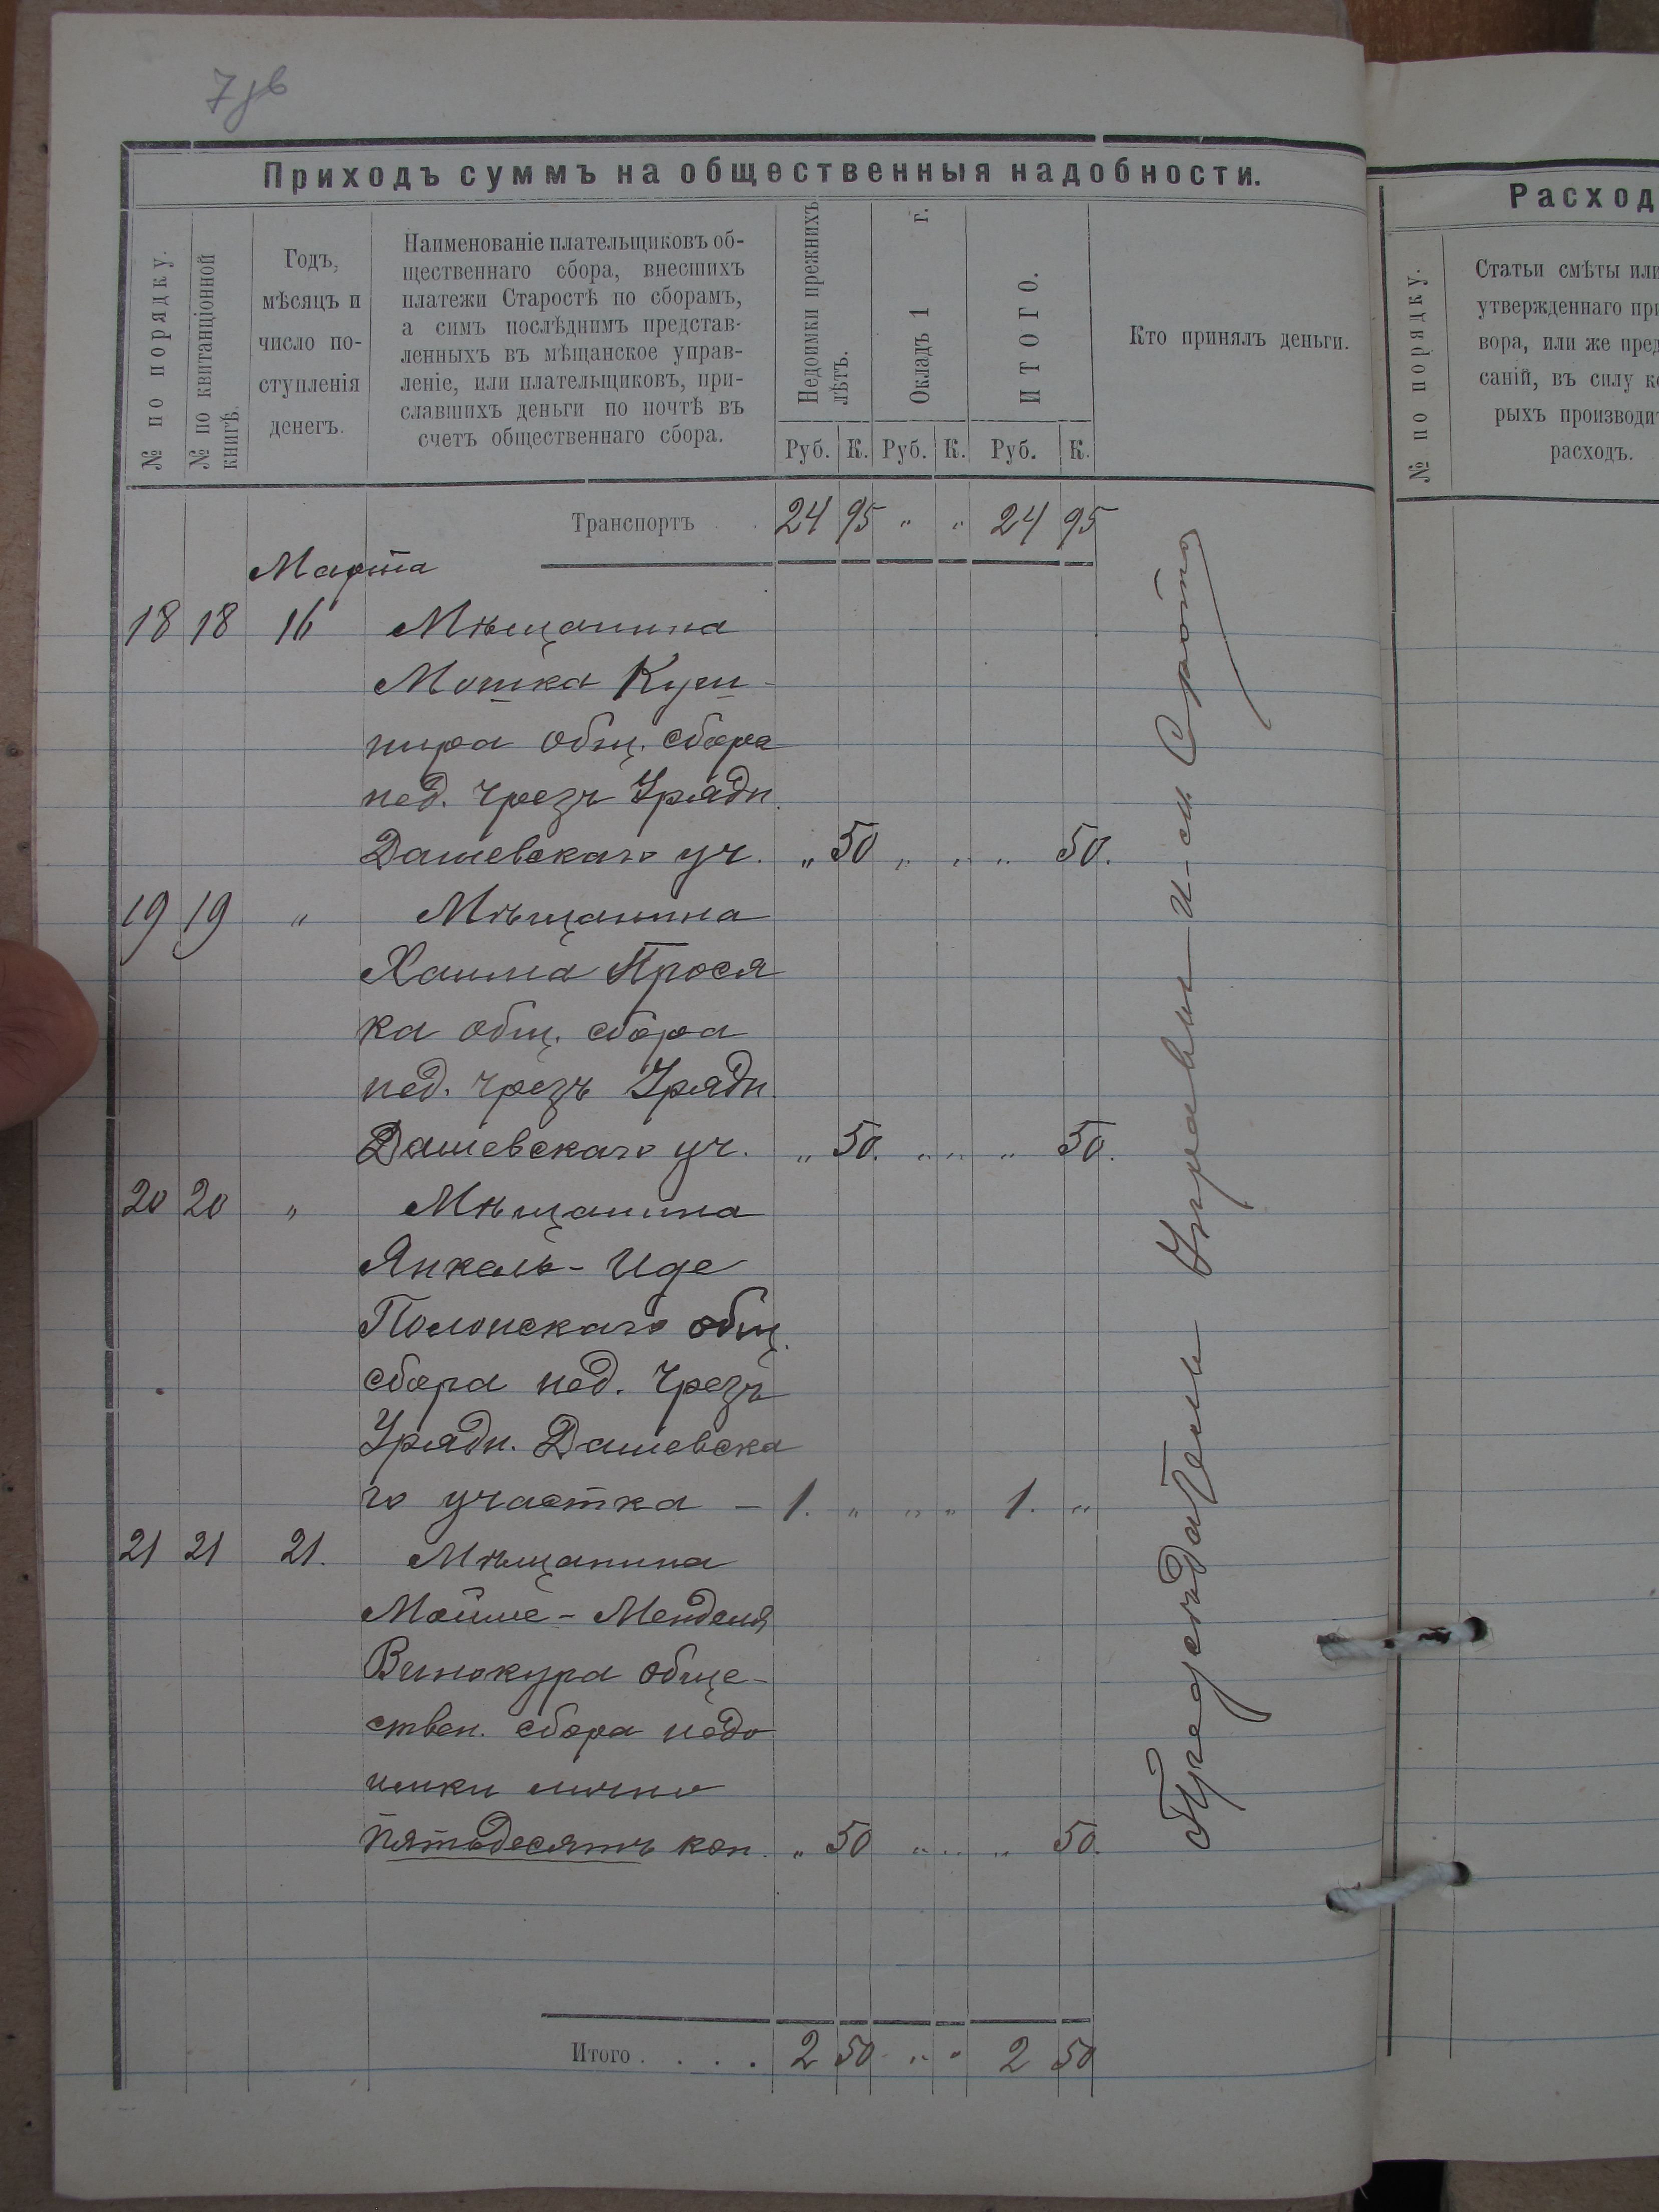 7 зв
Приходъ суммъ на общественныя надобности.
№ по порядку.
№ по квитанціонной
книгѣ.
Годъ,
мѣсяцъ и
число по-
ступленія
денегъ.
Наименованіе плательщиковъ об-
щественнаго сбора, внесшихъ
платежи Старостѣ по сборамъ,
а симъ послѣднимъ представ-
ленныхъ въ мѣщанское управ-
леніе, или плательщиковъ, при-
славшихъ деньги по почтѣ въ
счетъ общественнаго сбора.
Недоимки прежнихъ
лѣтъ.
Окладъ 1 г.
ИТОГО.
Руб. К. Руб. К. Руб. К.
Кто принялъ деньги.
Транспортъ . . 24 95 „ „ 24 95
Марта
18 18 16 Мѣщанина
Мошка Куш-
нира общ. сбора
нед. чрезъ Урядн.
Дашевскаго уч. „ 50 „ „ „ 50.
19 19 „ Мѣщанина
Хаима Прося
ка общ. сбора
нед. чрезъ Урядн.
Дашевскаго уч. „ 50. „ „ „ 50.
20 20 „ Мѣщанина
Янкель-Иде
Полонскаго общ.
сбора нед. чрезъ
Урядн. Дашевска
го участка – 1. „ „ „ 1. „
21 21 21. Мѣщанина
Мойше-Менделя
Винокура обще-
ствен. сбора недо
имки лично
пятьдесятъ коп. „ 50 „ „ „ 50.
Итого . . . . 2 50 „ „ 2 50
Предсѣдатель Управы
Расход
№ по порядку.
Статьи смѣты или
утвержденнаго при
вора, или же пред
саній, въ силу ко
рыхъ производит
расходъ.